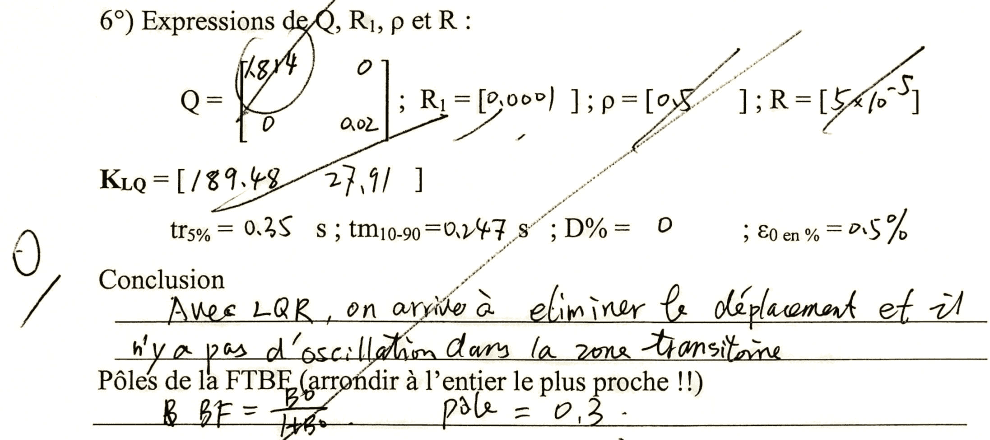 6°) Expressions de Q, R₁, ρ et R :
Q = [1.814 0
0 0.02] ; R₁ = [0,0001 ] ; ρ = [0,5 ] ; R = [5×10⁻⁵]
K_LQ = [189.48 27,91 ]
tr₅% = 0.35 s ; tm₁₀₋₉₀ = 0.247 s ; D% = 0 ; ε₀ en % = 0.5%
0/
Conclusion
Avec LQR, on arrive à eliminer le déplacement et il
n'y a pas d'oscillation dans la zone transitoire
Pôles de la FTBF (arrondir à l'entier le plus proche !!)
BF = B0/1+B0 . pôle = 0.3 .